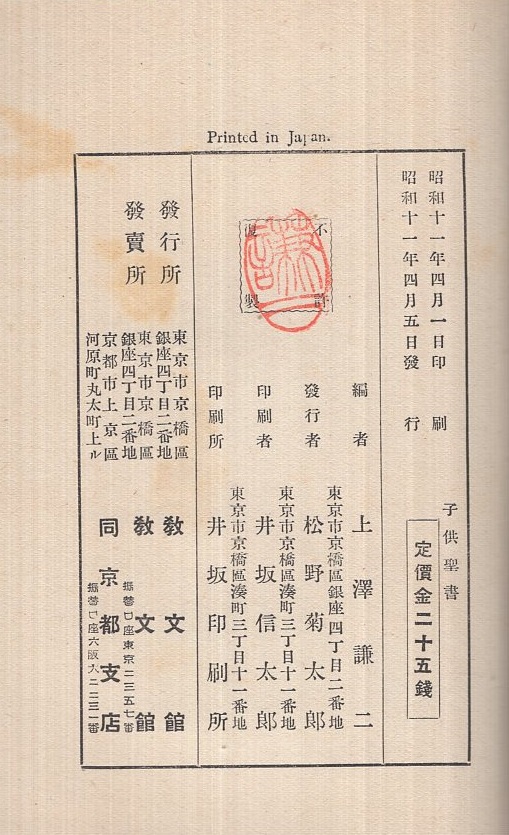 Printed in Japan.
昭和十一年四月一日印刷
昭和十一年四月五日發行
子供聖書
定價金二十五錢
不許
複製
謙二
編者 上澤謙二
東京市京橋區銀座四丁目二番地
發行者 松野菊太郎
東京市京橋區湊町三丁目十一番地
印刷者 井坂信太郎
東京市京橋區湊町三丁目十一番地
印刷所 井坂印刷所
發行所 東京市京橋區銀座四丁目二番地 教文館
發賣所 東京市京橋區銀座四丁目二番地 教文館
振替口座東京一二三五七番
京都市上京區河原町丸太町上ル 同京都支店
振替口座大阪